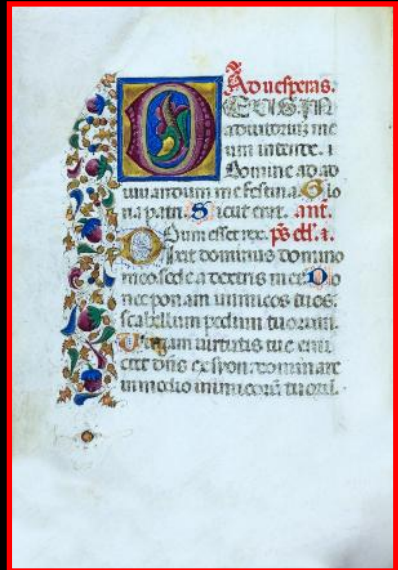 Ad uesperas.
DEUS IN
adiutorium me
um intende.
Domine ad ad
iuuandum me festina. Glo
ria patri. Sicut erat. ant.
Dum esset rex. ps
Dixit dominus domino
meo sede a dextris meis. Do
nec ponam inimicos tuos:
scabellum pedum tuorum.
Uirgam uirtutis tue emi
ttet dns ex syon: dominare
in medio inimicorum tuorum.